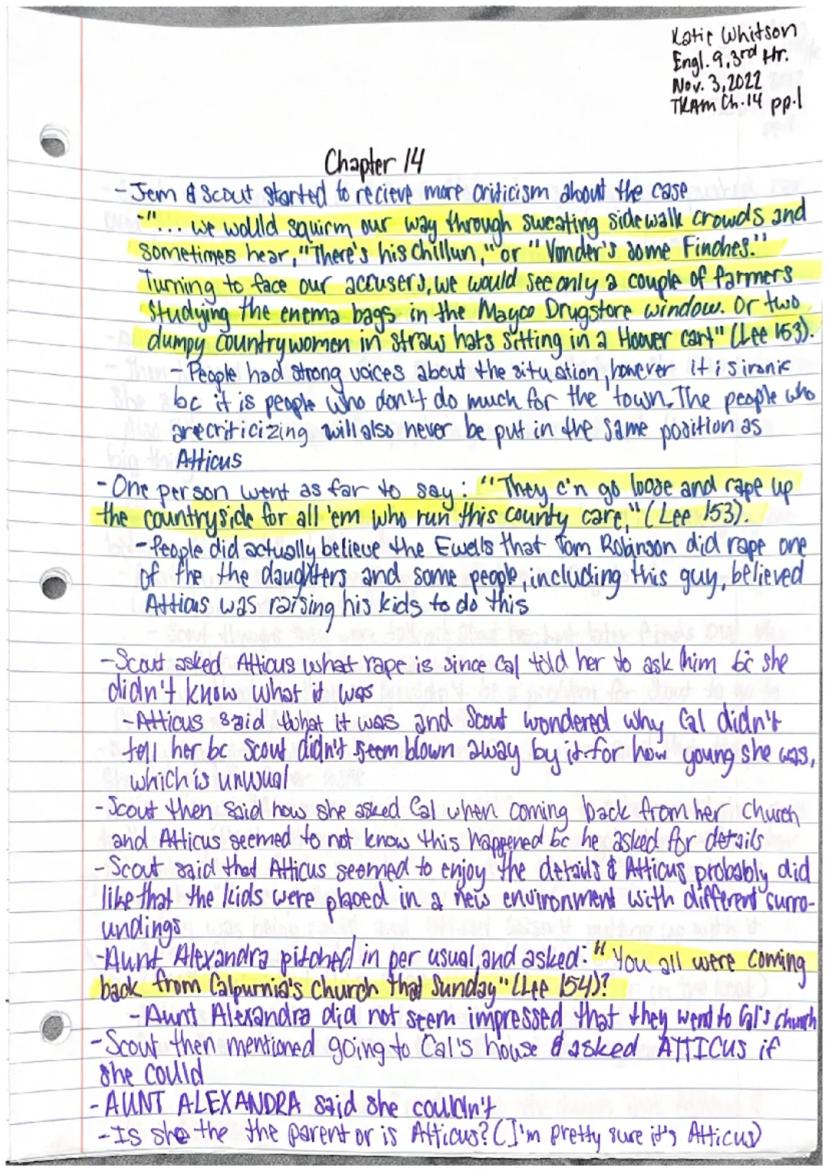 Katie Whitson
Engl. 9, 3rd Hr.
Nov. 3, 2022
TKAM Ch. 14 pp. 1
Chapter 14
- Jem & Scout started to recieve more criticism about the case
- "... we would squirm our way through sweating sidewalk crowds and
sometimes hear, "There's his chillun," or "Yonder's some Finches."
Turning to face our accusers, we would see only a couple of farmers
studying the enema bags in the Mayco Drugstore window. Or two
dumpy countrywomen in straw hats sitting in a Hoover cart" (Lee 153).
- People had strong voices about the situation, however it is ironic
bc it is people who don't do much for the town. The people who
are criticizing will also never be put in the same position as
Atticus
- One person went as far to say: "They c'n go loose and rape up
the countryside for all 'em who run this county care," (Lee 153).
- People did actually believe the Ewells that Tom Robinson did rape one
of the the daughters and some people, including this guy, believed
Atticus was raising his kids to do this
- Scout asked Atticus what rape is since Cal told her to ask him bc she
didn't know what it was
- Atticus said what it was and Scout wondered why Cal didn't
tell her bc Scout didn't seem blown away by it for how young she was,
which is unusual
- Scout then said how she asked Cal when coming back from her church
and Atticus seemed to not know this happened bc he asked for details
- Scout said that Atticus seemed to enjoy the details & Atticus probably did
like that the kids were placed in a new environment with different surro-
undings
- Aunt Alexandra pitched in per usual, and asked: "You all were coming
back from Calpurnia's church that Sunday" (Lee 154)?
- Aunt Alexandra did not seem impressed that they went to Cal's church
- Scout then mentioned going to Cal's house & asked ATTICUS if
she could
- AUNT ALEXANDRA said she couldn't
- Is she the the parent or is Atticus? (I'm pretty sure it's Atticus)